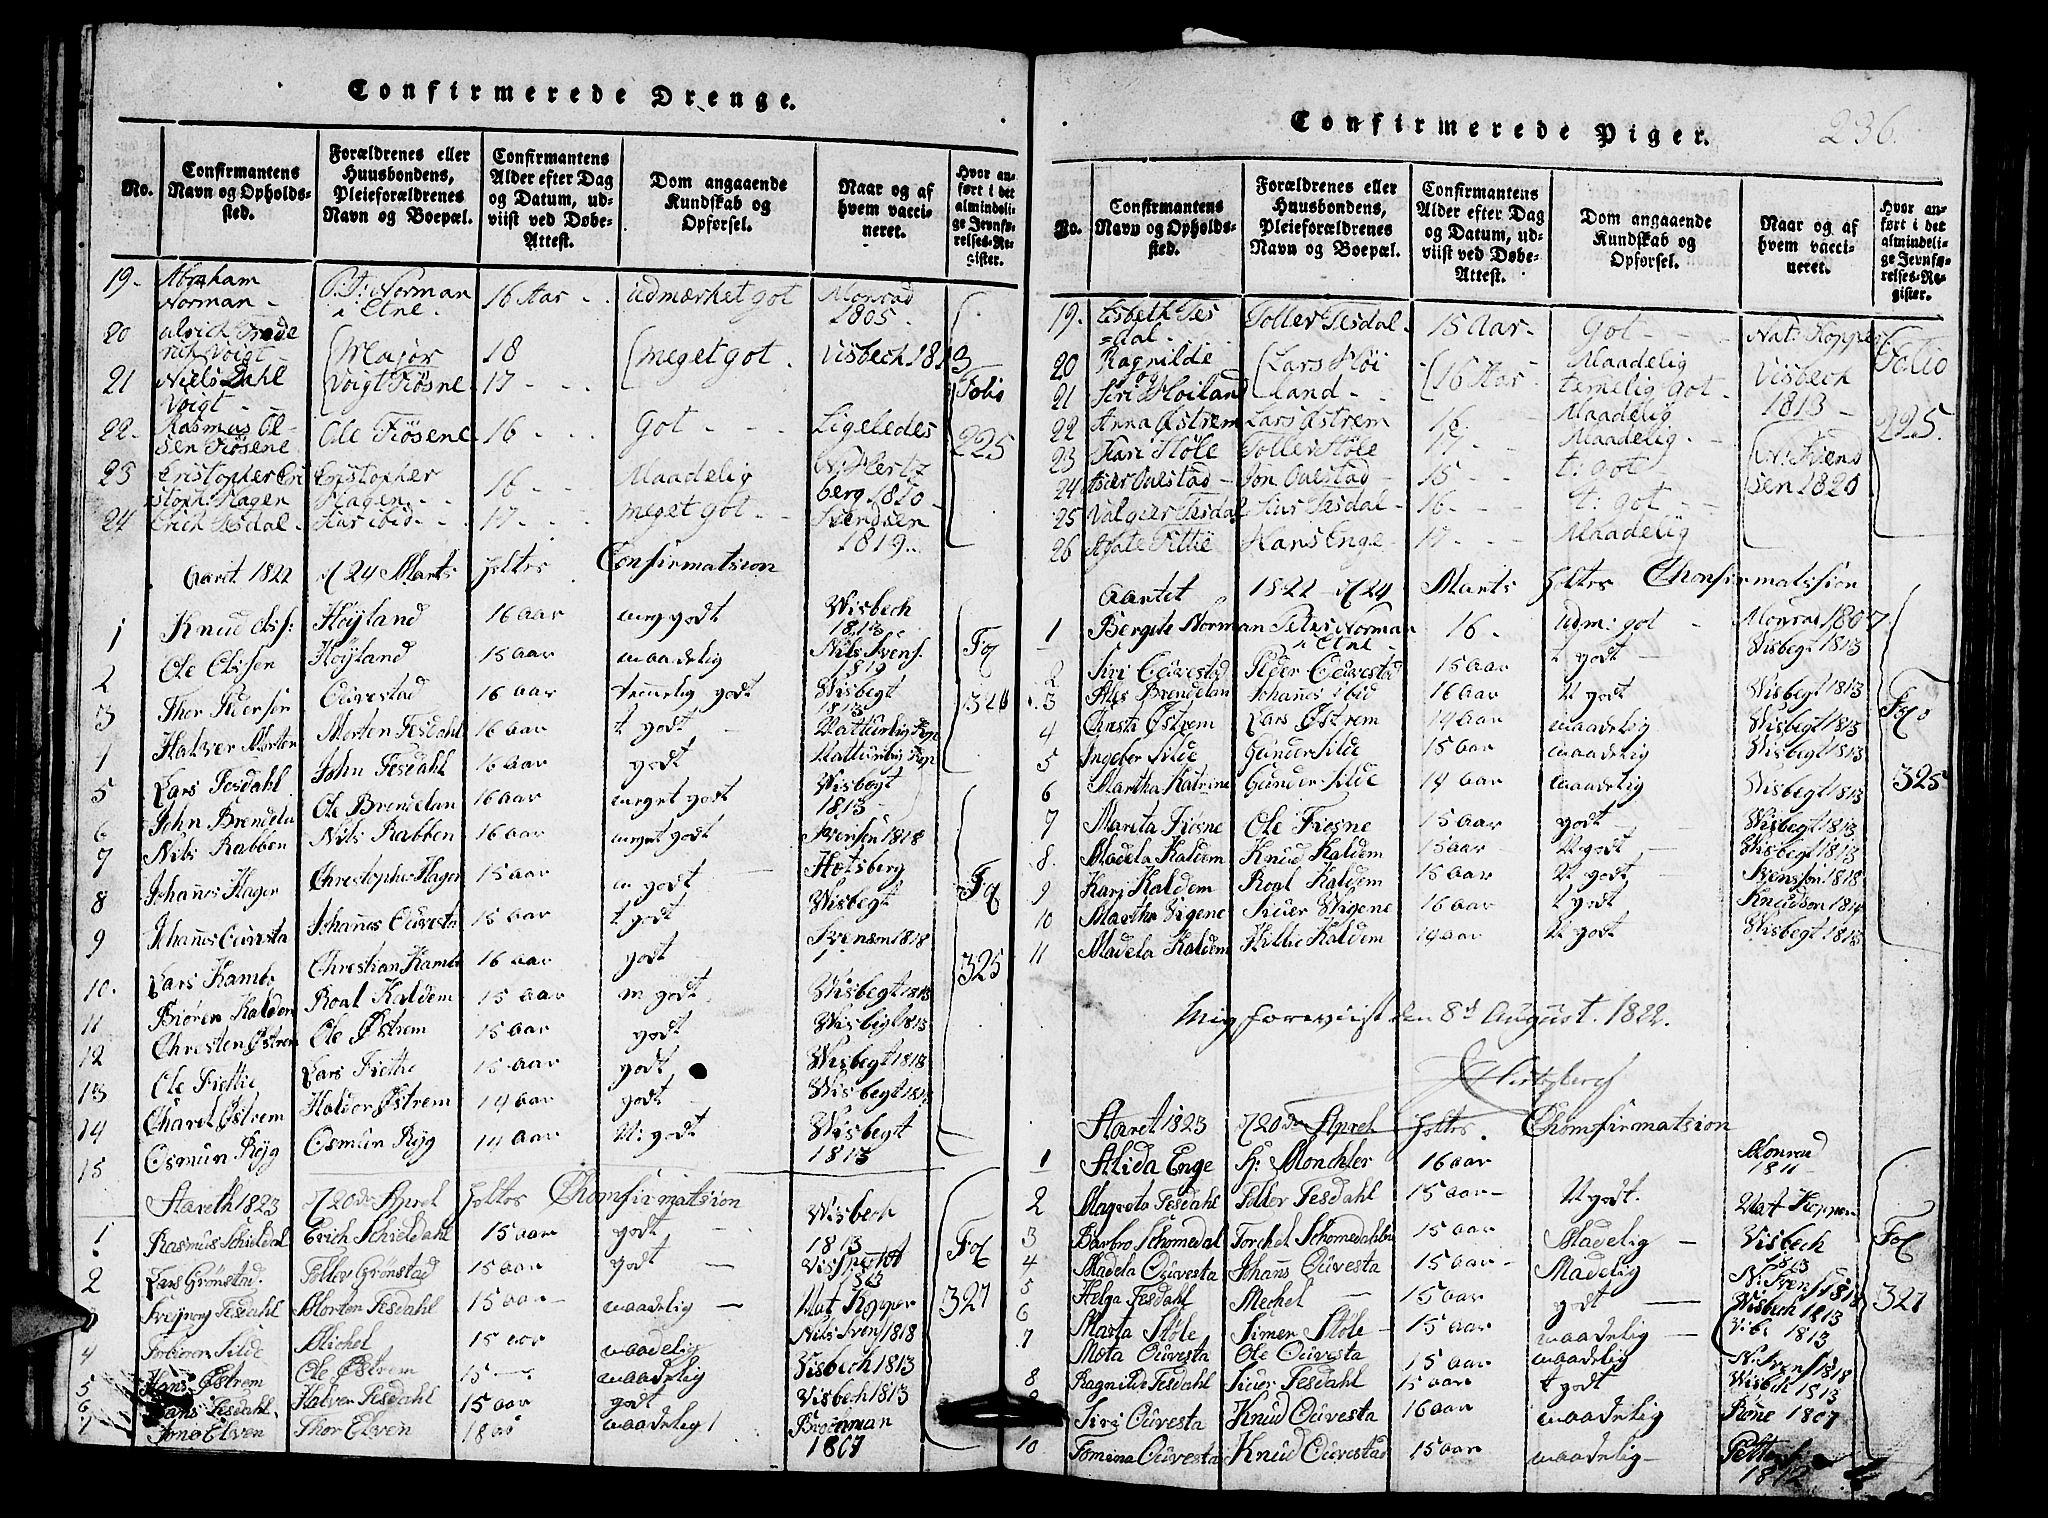 Confirmerede Drenge.
No.
Confirmantens Navn og Opholds-sted.
Forældrenes eller Huusbondens, Pleieforældrenes Navn og Boepæl.
Confirmantens Alder efter Dag og Datum, ud-viist ved Døbe-Attest.
Dom angaaende Kundskab og Opførsel.
Naar og af hvem vacci-neret.
Hvor an-ført i det almindeli-ge Jevnfø-relses-Re-gister.
19. Abraham Norman - P. T: Norman i Etne. 16 Aar - udmærket got Monrad 1805.
20 Ulrich Frede rich Voigt - Major Voigt Fiøsne 18 meget got. Visbech 1813
21 Niels Dahl Voigt - 17 - - Folio
22 Rasmus Ol-sen Fiøsene Ole Fiøsene 16 - - Got - - Ligeledes 225
23 Cristopher Cri stoph: Hagen Cristopher Hagen - - 16 - - Maadelig N: Hertz berg 1810
24 Erich Tesdal - Siur ibid - - 17 - - meget got - Svendsen 1819
Aaret 1822 d 24 Marts holtes Confirmatsion
1 Knud Ols: Høyland 16 aar meg godt Wisbech 1813
2 Ole Olsen Høyland 15 aar maadelig Nils Svens. 1819 Fol
3 Thor Pedersen Ouvestad 16 aar temmelig godt Wisbegt 1813 324
1 Halver Morten Morten Tesdahl 16 aar t godt Natturlig Kop
5 Lars Tesdahl John Tesdahl 16 aar godt Natturlig Kop
6 John Brendela Ole Brendelan 16 aar meget godt Wisbegt 1813
7 Nils Rabben Nils Rabben 16 aar meget godt Svensen 1818
8 Johanes Hagen Chrestopher Hagen 15 aar m godt Hetsberg Fol
9 Johanes Ouvesta Johanes Ouvesta 15 aar t godt Wisbegt
10. Lars Kambe Chrestian Kambe 16 aar godt Svensøn 1818 325
11 Biøren Kaldem Roal Kaldem 15 aar m godt Wisbegt 1813
12 Chresten Østrem Ole Østrem 15 aar godt Wisbegt 1813
13 Ole Fiettie Lars Fiettie 15 aar godt Wisbegt 1813
14 Charel Østrem Haldor Østrem 14 aar godt Wisbegt 1813
15 Osmun Ryg Osmun Ryg 14 aar M: godt Wisbegt 1813
Aareth 1823 d 20de Apvel holtes Chomfirmatsion
1 Rasmus Schieldal Erich Schieldahl 15 aar godt Wisbech 1813
2 Lars Grønstad. Toldev Grønstad 15 aar godt 1813 Fol
Morten Tesdahl 15 aar maadelig Nat Kopper 327
4 Silde Michel 15 aar maadelig Nils Svens 1818
5 Hans Østrem Ole Østrem 15 maadelig Visbech 1813
6 Hans Tesdahl Halver Tesdahl 15 aar godt Visbech 1813
7 Arne Elven Thor Elven 18 aar maadelig Broenman 1807
Confirmerede Piger.
236.
No.
Confirmantens Navn og Opholds-sted.
Forældrenes eller Huusbondens, Pleieforældrenes Navn og Boepæl.
Confirmantens Alder efter Dag og Datum, ud-viist ved Døbe-Attest.
Dom angaaende Kundskab og Opførsel.
Naar og af hvem vacci-neret.
Hvor an-ført i det almindeli-ge Jevnfø-relses-Re-gister.
19. Lisbeth Tes =dal. Tollev Tesdal 15 Aar Got - - Nat: Kopper Folio
20 Ragnilde og Lars Høi land - 16 Aar Maadelig Visbech 1813
21 Siri Høiland temelig Got
22 Anna Østrem Lars Østrem 16. Maadelig 225.
23 Kari Støle Tollev Støle 17 - Maadelig N: Svend sen 1820
24 Ouestad - Jon Ouestad - 15 - - t: got
25 Valgier Tesdal Siur Tesdal - 16 - - t: got -
26 Agate Fittie Hans Enge - 17 - - Maadelig
Aartet 1822 d 24 Marts holtes Chonfirmatssion
1 Bergite Norman Peter Norman i Etne 16 - udm: got - Monrad 1807
2 Siri Ouvestad Peder Ouvestad 15 aar t godt Wisbegt 1813
3 Ales Brendelan Johanes ibid 16 aar M godt Wisbegt 1813
4 Crista Østrem Lars Østrem 14 aar maadelig Wisbegt 1813 Folo
5 Ingebor Silde Gunder Silde 15 aar maadelig Wisbegt 1813
6 Martha Katrine Gunder Silde 14 aar maadelig Wisbegt 1813 325
7 Mareta Fiosne Ole Fiosne 15 aar godt Wisbegt 1813
8. Madela Kaldem Knud Kaldem 15 aar M godt Wisbegt 1813
9 Kari Kaldem Roal Kaldem 15 aar M godt Svensson 1818
10 Martha Vigene Siver Vigene 16 aar t godt Knudson 1814
11 Madela Kaldem Killie Kaldem 14 aar M godt Wisbegt 1813
Mig foreviist den 8d August. 1822.
Hertzberg
Aaret 1823 d 20de Apvel holtes. Chomfirmatsion
1 Alida Enge H: Monchler 16 aar Monrad 1811
2 Magreta Tesdahl Toldev Tesdahl 15 aar - M godt. Nat Kopper
3 Barbro Schomedal Torchel Schomedahl 15 aar Madelig Visbech 1813 Fol
4 Madela Ouvesta Johans Ouvesta 15 aar Madelig N: Svens 1818
5 Helga Tesdahl Mechel 15 aar godt Wisbech 1813 327
6 Marta Støle Simen Støle 15 aar maadelig Vibs 1813
7 Mota Ouvesta Ole Ouvesta 15 aar maadelig N: Svens 1818
8 Ragnilde Tesdahl Siver Tesdahl 15 aar t godt Wisbech 1813
Siri Ouvesta Knud Ouvesta 16 aar maadelig Røne 1807
10 Tomina Ouvesta Knud Ouvestad 15 aar maadelig 1812